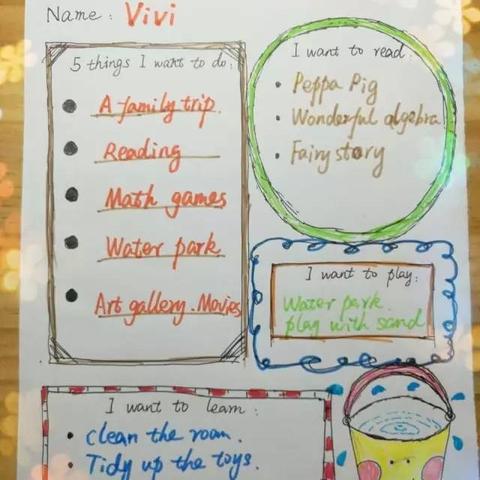 Name: Vivi
5 things I want to do:
A family trip.
Reading
Math games
Water park
Art gallery. Movies
I want to read:
Peppa Pig
Wonderful algebra
Fairy story
I want to play:
Water park.
play with sand
I want to learn:
clean the room.
Tidy up the toys.